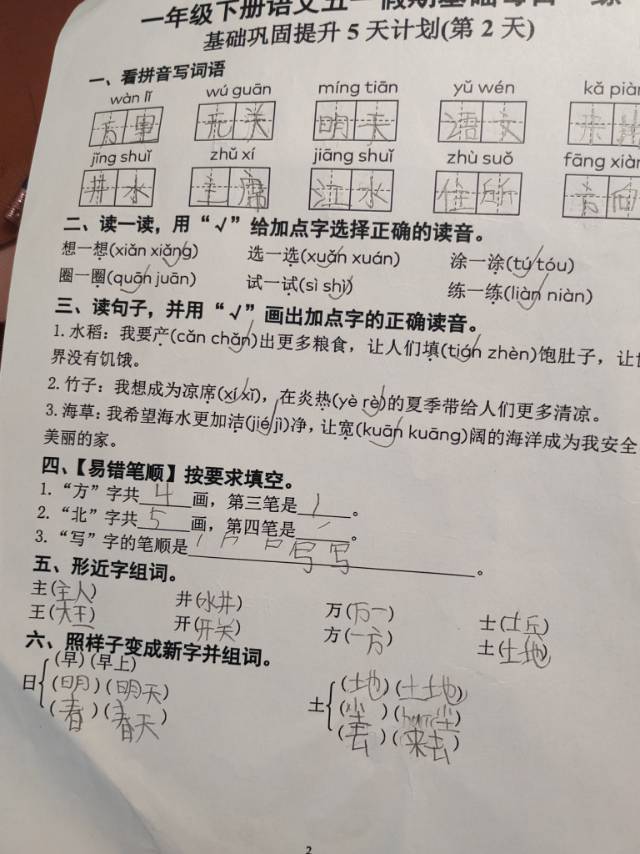 一年级下册语文五一假期基础每日一练
基础巩固提升5天计划(第2天)
一、看拼音写词语
wàn lǐ wú guān míng tiān yǔ wén kǎ piàn
万里 无关 明天 语文
jǐng shuǐ zhǔ xí jiāng shuǐ zhù suǒ fāng xiàn
井水 主席 江水 住所 方向
二、读一读，用“√”给加点字选择正确的读音。
想一想(xiǎn xiǎng) 选一选(xuǎn xuán) 涂一涂(tú tóu)
圈一圈(quān juān) 试一试(sì shì) 练一练(liàn niàn)
三、读句子，并用“√”画出加点字的正确读音。
1.水稻：我要产(cǎn chǎn)出更多粮食，让人们填(tián zhèn)饱肚子，让
界没有饥饿。
2.竹子：我想成为凉席(xí xī)，在炎热(yè rè)的夏季带给人们更多清凉。
3.海草：我希望海水更加洁(jié jì)净，让宽(kuān kuāng)阔的海洋成为我安全
美丽的家。
四、【易错笔顺】按要求填空。
1.“方”字共4画，第三笔是。
2.“北”字共5画，第四笔是。
3.“写”字的笔顺是 写。
五、形近字组词。
主(主人) 井(水井) 万(万一) 士(士兵)
王(大王) 开(开关) 方(一方) 土(土地)
六、照样子变成新字并组词。
日 (早)(早上)
(明)(明天)
(春)(春天)
土 (地)(土地)
(尘)(尘)
(去)(来去)
2